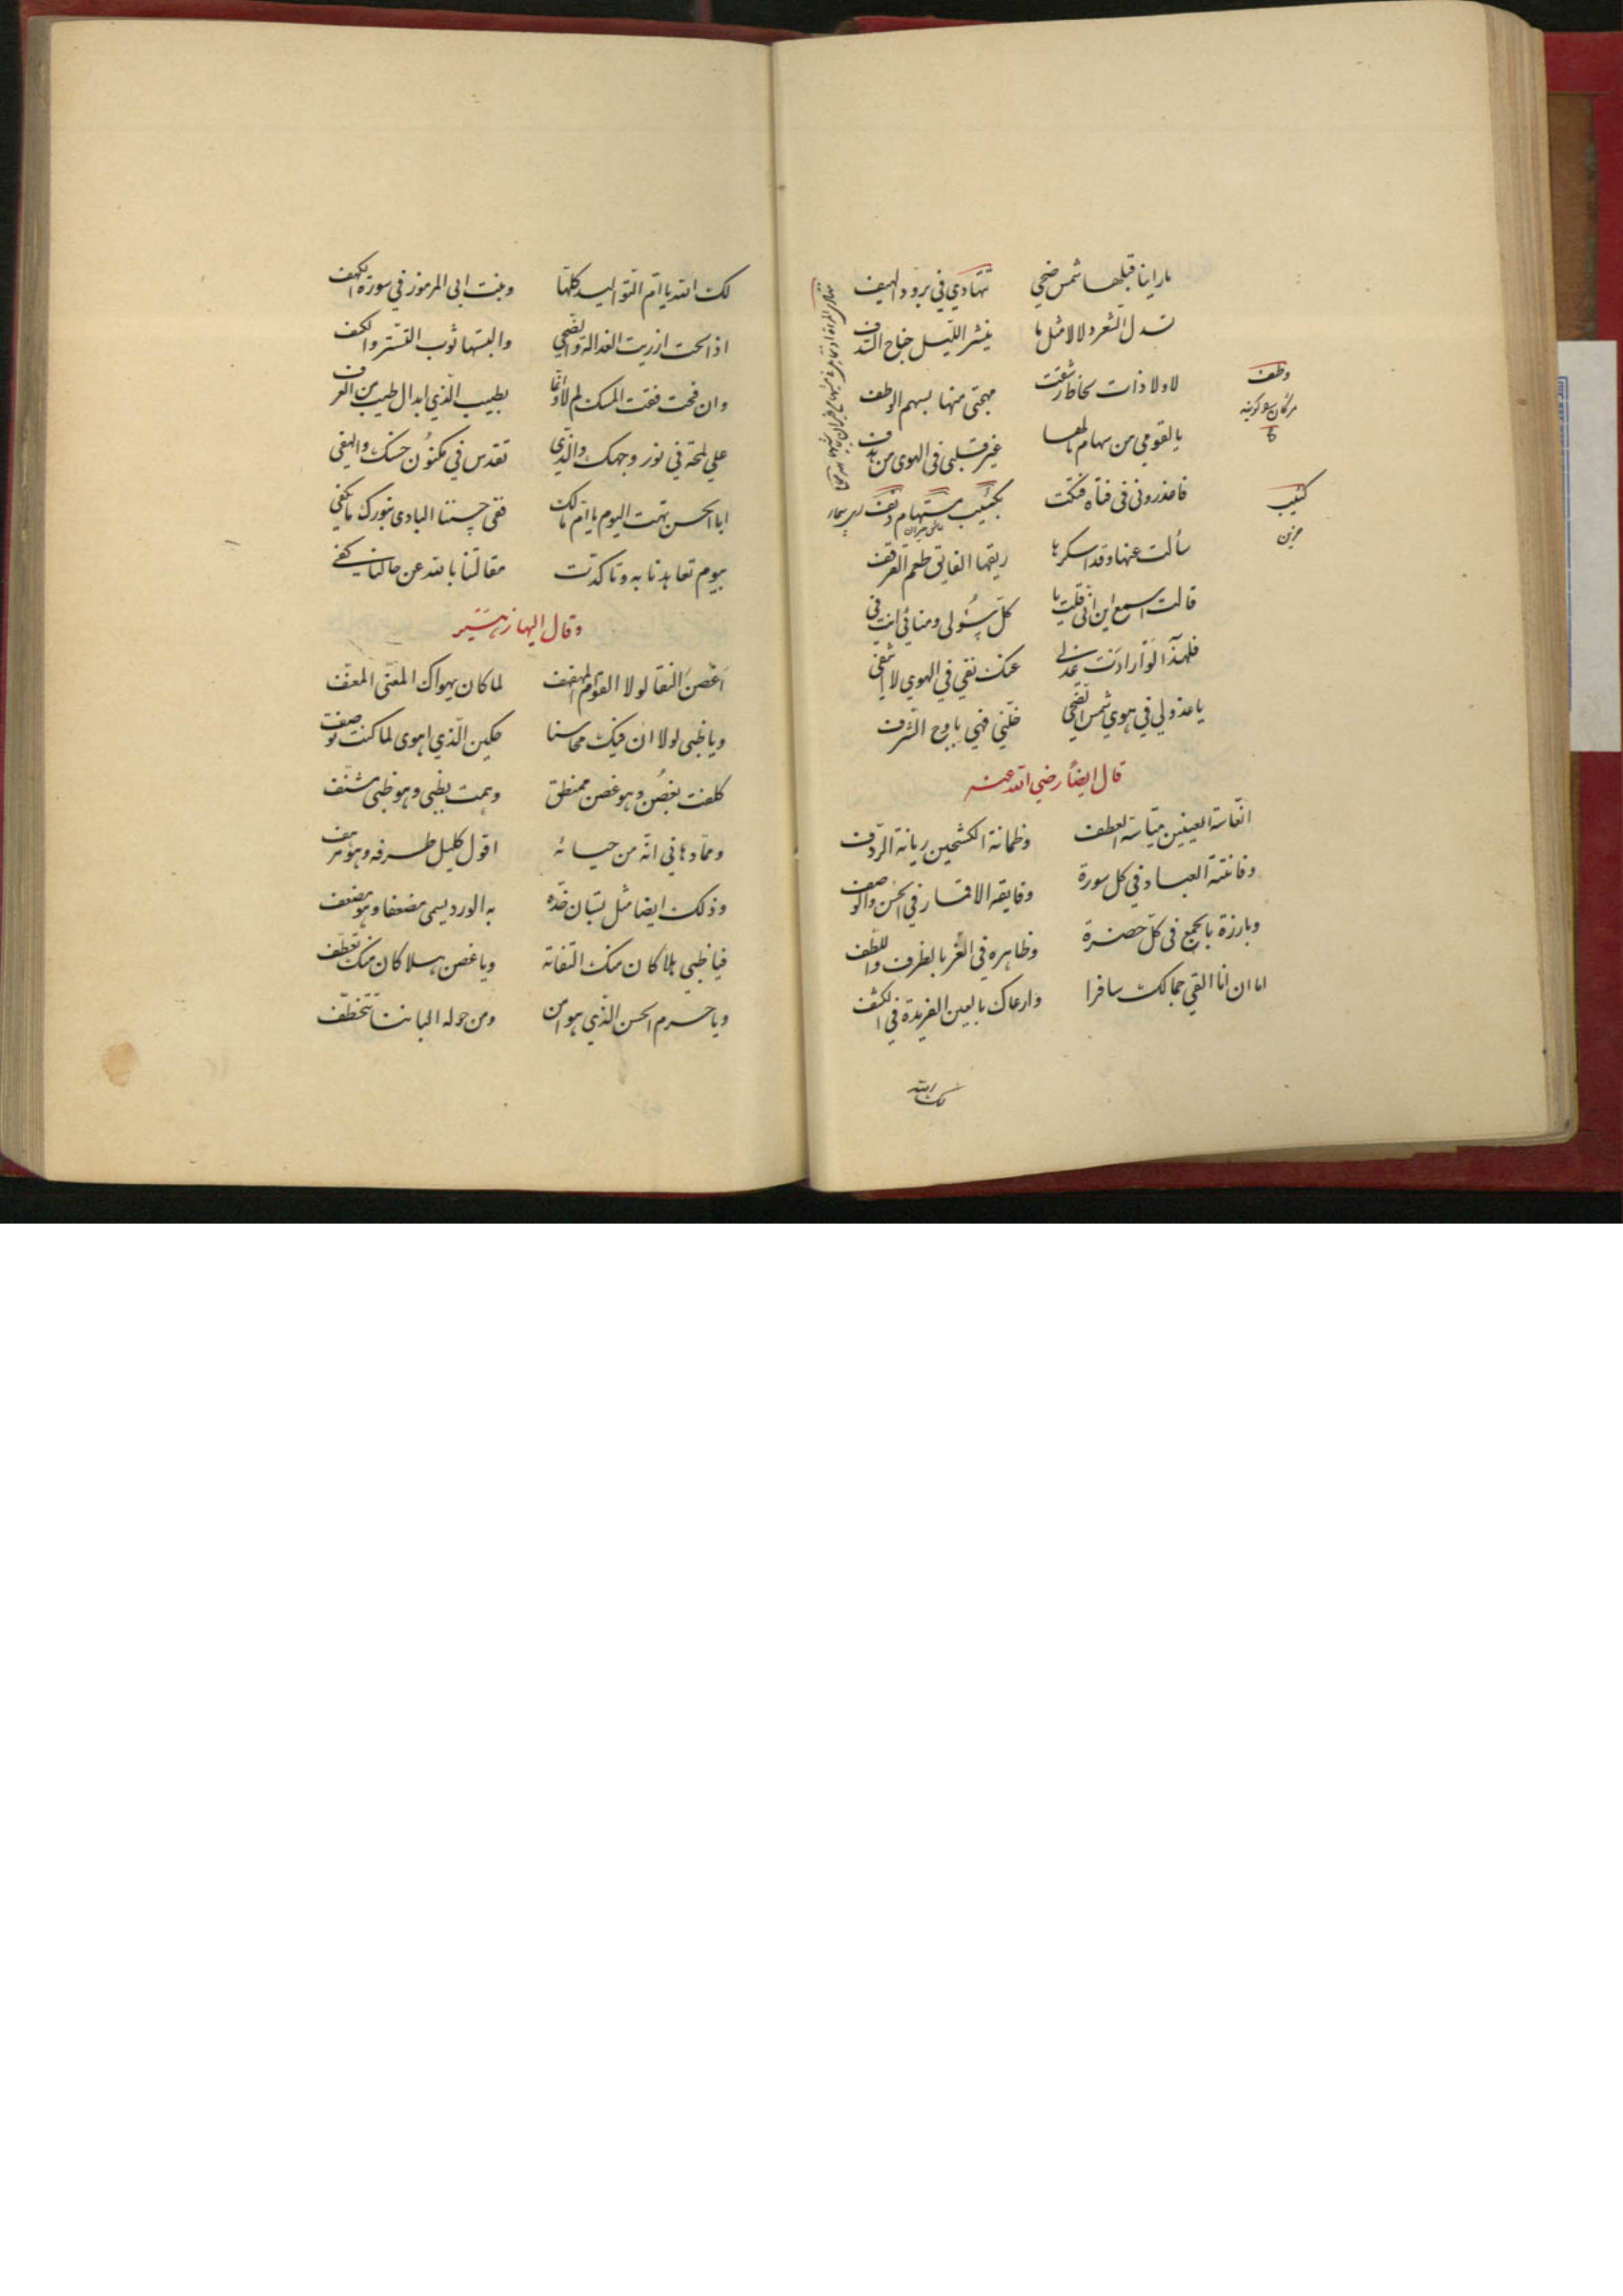 ما راينا قبلها شمس ضحي تتهادي في برود الهيف
تسدل الشعر دلالا مثل ما ينشر الليل جناح السدف
لاولا ذات لحاظ رشقت مهجتي منها بسهم الوطف
يا لقومي من سهام مالها غير قلبي في الهوى من هدف
فاعذروني في فتاه فتكت بكئيب مستهام دنف
سألت عنها وقد اسكرها ريقها الفايق طعم القرقف
قالت اسمع اين انى قلت يا كل سؤلى ومنائي انت في
فلهذا لو ارادت عذلي عنك نفي في الهوي لا اشتفي
يا عذولي في هوي شمس الضحي خلني فهي باوج الشرف
قال ايضاً رضي الله عنه
انعاسة العينين مياسة العطف وظمانة الكشحين ريانة الردف
وفاتنة العباد في كل سورة وفايقه الاقمار في الحسن والوصف
وبارزة بالجمع في كل حضرة وظاهره في الغر بالظرف واللطف
اما ان انا القي جمالك سافرا وارعاك بالعين الفريدة في الكشف
لك الله
وطف
كئيب
حزين
لك الله يا ام التواليد كلها وبنت ابي المرموز في سورة الكهف
اذا لحت ازريت الغدالة والضحي والبستها ثوب التستر والكسف
وان فحت فقت المسك لم لا وانما بطيب الذي ابدال طيب من العرف
علي لمحة في نور وجهك والذي تقدس في مكنون حسنك والهفى
ابا الحسن تهت اليوم يا ام مالك ففي حسننا البادى بنورك ما يكفي
بيوم تعاهدنا به وتاكدت مقالتنا بالله عن حالنا كفى
وقال البها زهير
اغصن النقا لولا القوام المهفهف لما كان يهواك المعنى المعنف
ويا ظبي لولا ان فيك محاسنا حكين الذي اهوى لما كنت توصف
كلفت بغصن وهو غصن ممنطق وهمت بظبي وهو ظبي مشنف
ومما دهاني انه من حيائه اقول كليل طرفه وهو مرهف
وذلك ايضا مثل بستان خده به الورد يسمى مضعفا وهو مضعف
فيا ظبي هلا كان منك التفاتة ويا غصن هلا كان منك تعطف
ويا حرم الحسن الذي هو امن ومن حوله البابنا تتخطف